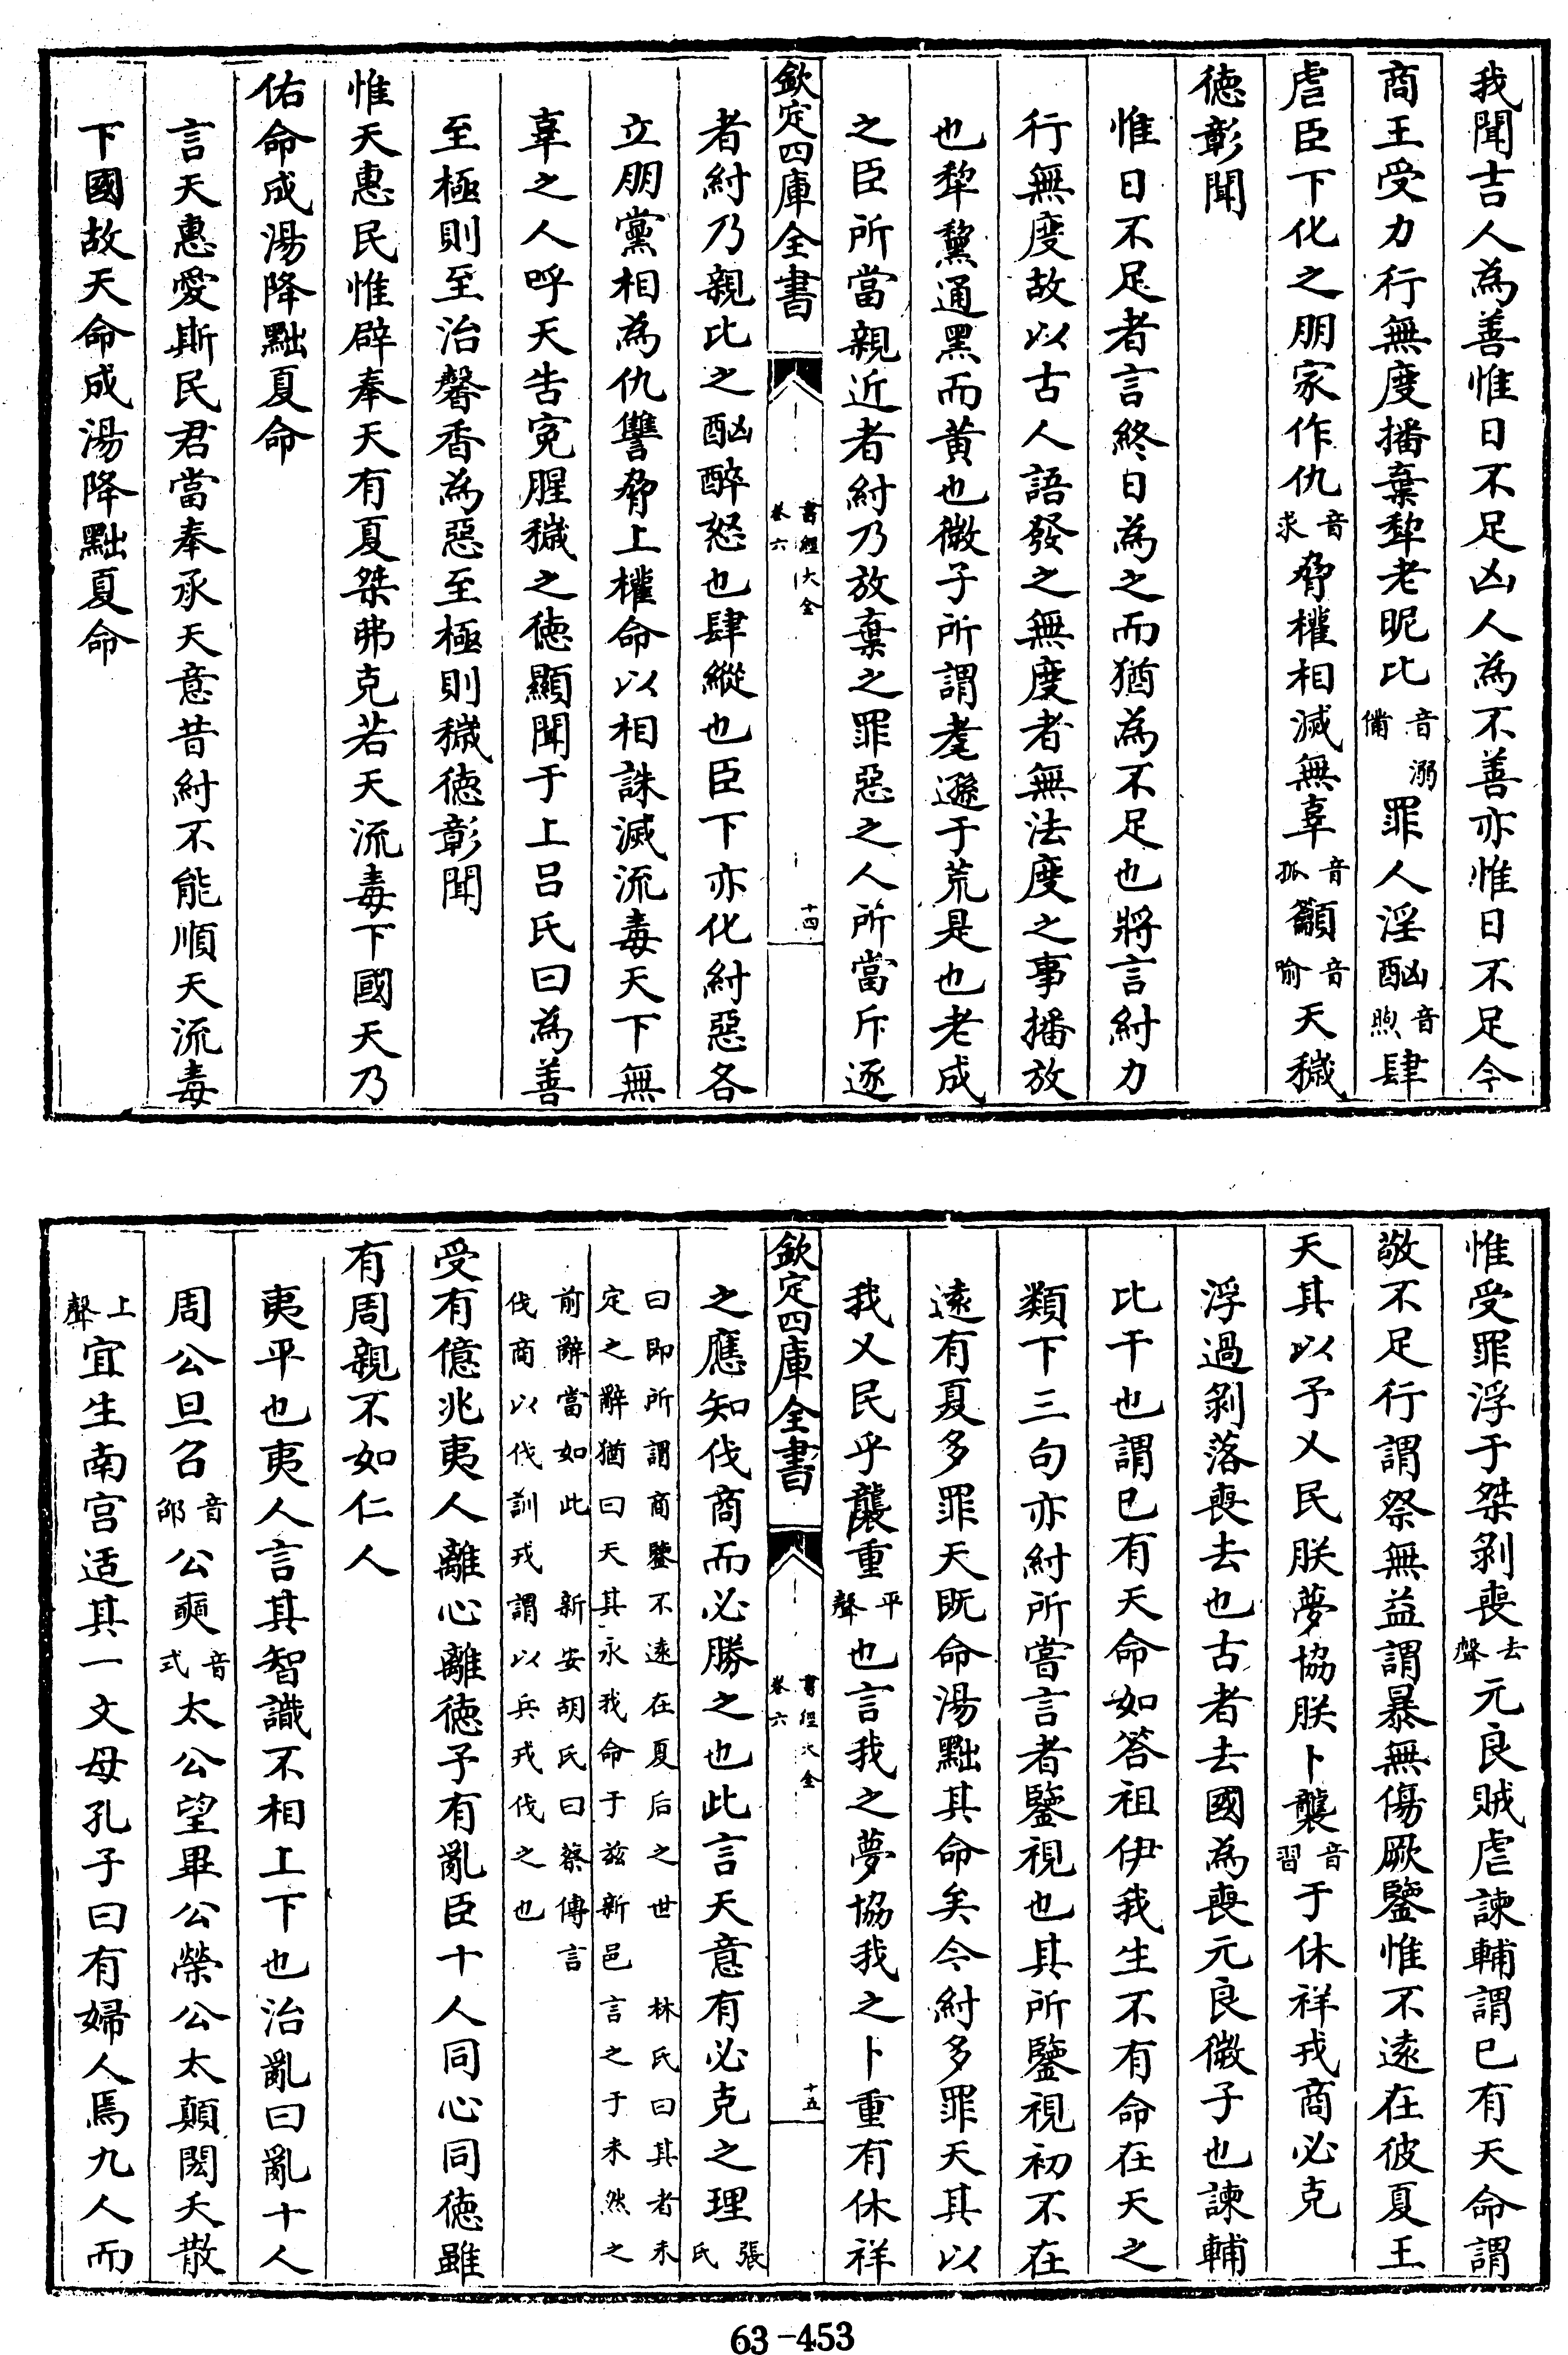 我聞吉人為善惟日不足凶人為不善亦惟日不足今
商王受力行無度播棄犂老昵比音備溺罪人淫酗音煦肆
虐臣下化之朋家作仇音求脅權相滅無辜音孤籲音喻天穢
德彰聞
惟日不足者言終日為之而猶為不足也將言紂力
行無度故以古人語發之無度者無法度之事播放
也犂黧通黑而黃也微子所謂耄遜于荒是也老成
之臣所當親近者紂乃放棄之罪惡之人所當斥逐
欽定四庫全書
書經大全
卷六
十四
者紂乃親比之酗醉怒也肆縱也臣下亦化紂惡各
立朋黨相為仇讐脅上權命以相誅滅流毒天下無
辜之人呼天告冤腥穢之德顯聞于上呂氏曰為善
至極則至治馨香為惡至極則穢德彰聞
惟天惠民惟辟奉天有夏桀弗克若天流毒下國天乃
佑命成湯降黜夏命
言天惠愛斯民君當奉承天意昔紂不能順天流毒
下國故天命成湯降黜夏命
惟受罪浮于桀剝喪去聲元良賊虐諫輔謂已有天命謂
敬不足行謂祭無益謂暴無傷厥鑒惟不遠在彼夏王
天其以予乂民朕夢協朕卜襲音習于休祥戎商必克
浮過剝落喪去也古者去國為喪元良微子也諫輔
比干也謂已有天命如答祖伊我生不有命在天之
類下三句亦紂所嘗言者鑒視也其所鑒視初不在
遠有夏多罪天既命湯黜其命矣今紂多罪天其以
我乂民乎襲重平聲也言我之夢協我之卜重有休祥
欽定四庫全書
書經大全
卷六
十五
之應知伐商而必勝之也此言天意有必克之理張氏
曰即所謂商鑒不遠在夏后之世　林氏曰其者未
定之辭猶曰天其永我命于茲新邑言之于未然之
前辭當如此　新安胡氏曰蔡傳言
伐商以伐訓戎謂以兵戎伐之也
受有億兆夷人離心離德予有亂臣十人同心同德雖
有周親不如仁人
夷平也夷人言其智識不相上下也治亂曰亂十人
周公旦召音邵公奭音式太公望畢公榮公太顛閎夭散
上聲宜生南宫适其一文母孔子曰有婦人焉九人而
63-453